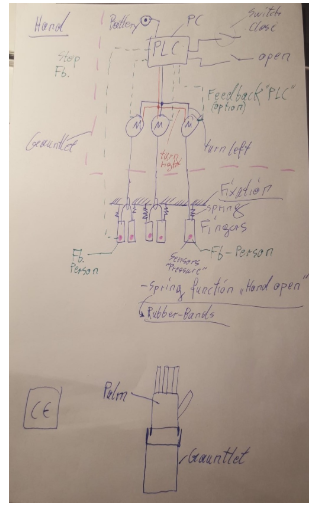 Hand
Battery
PC
Switch
Close
PLC
open
Stop
Fb.
Feedback "PLC"
(option)
Gauntlet
M
M
M
turn left
turn
right
Fixation
Spring
Fingers
Fb.
Person
Fb-Person
Sensors
Pressure
-Spring function "Hand open"
Rubber-Bands
Palm
CE
Gauntlet